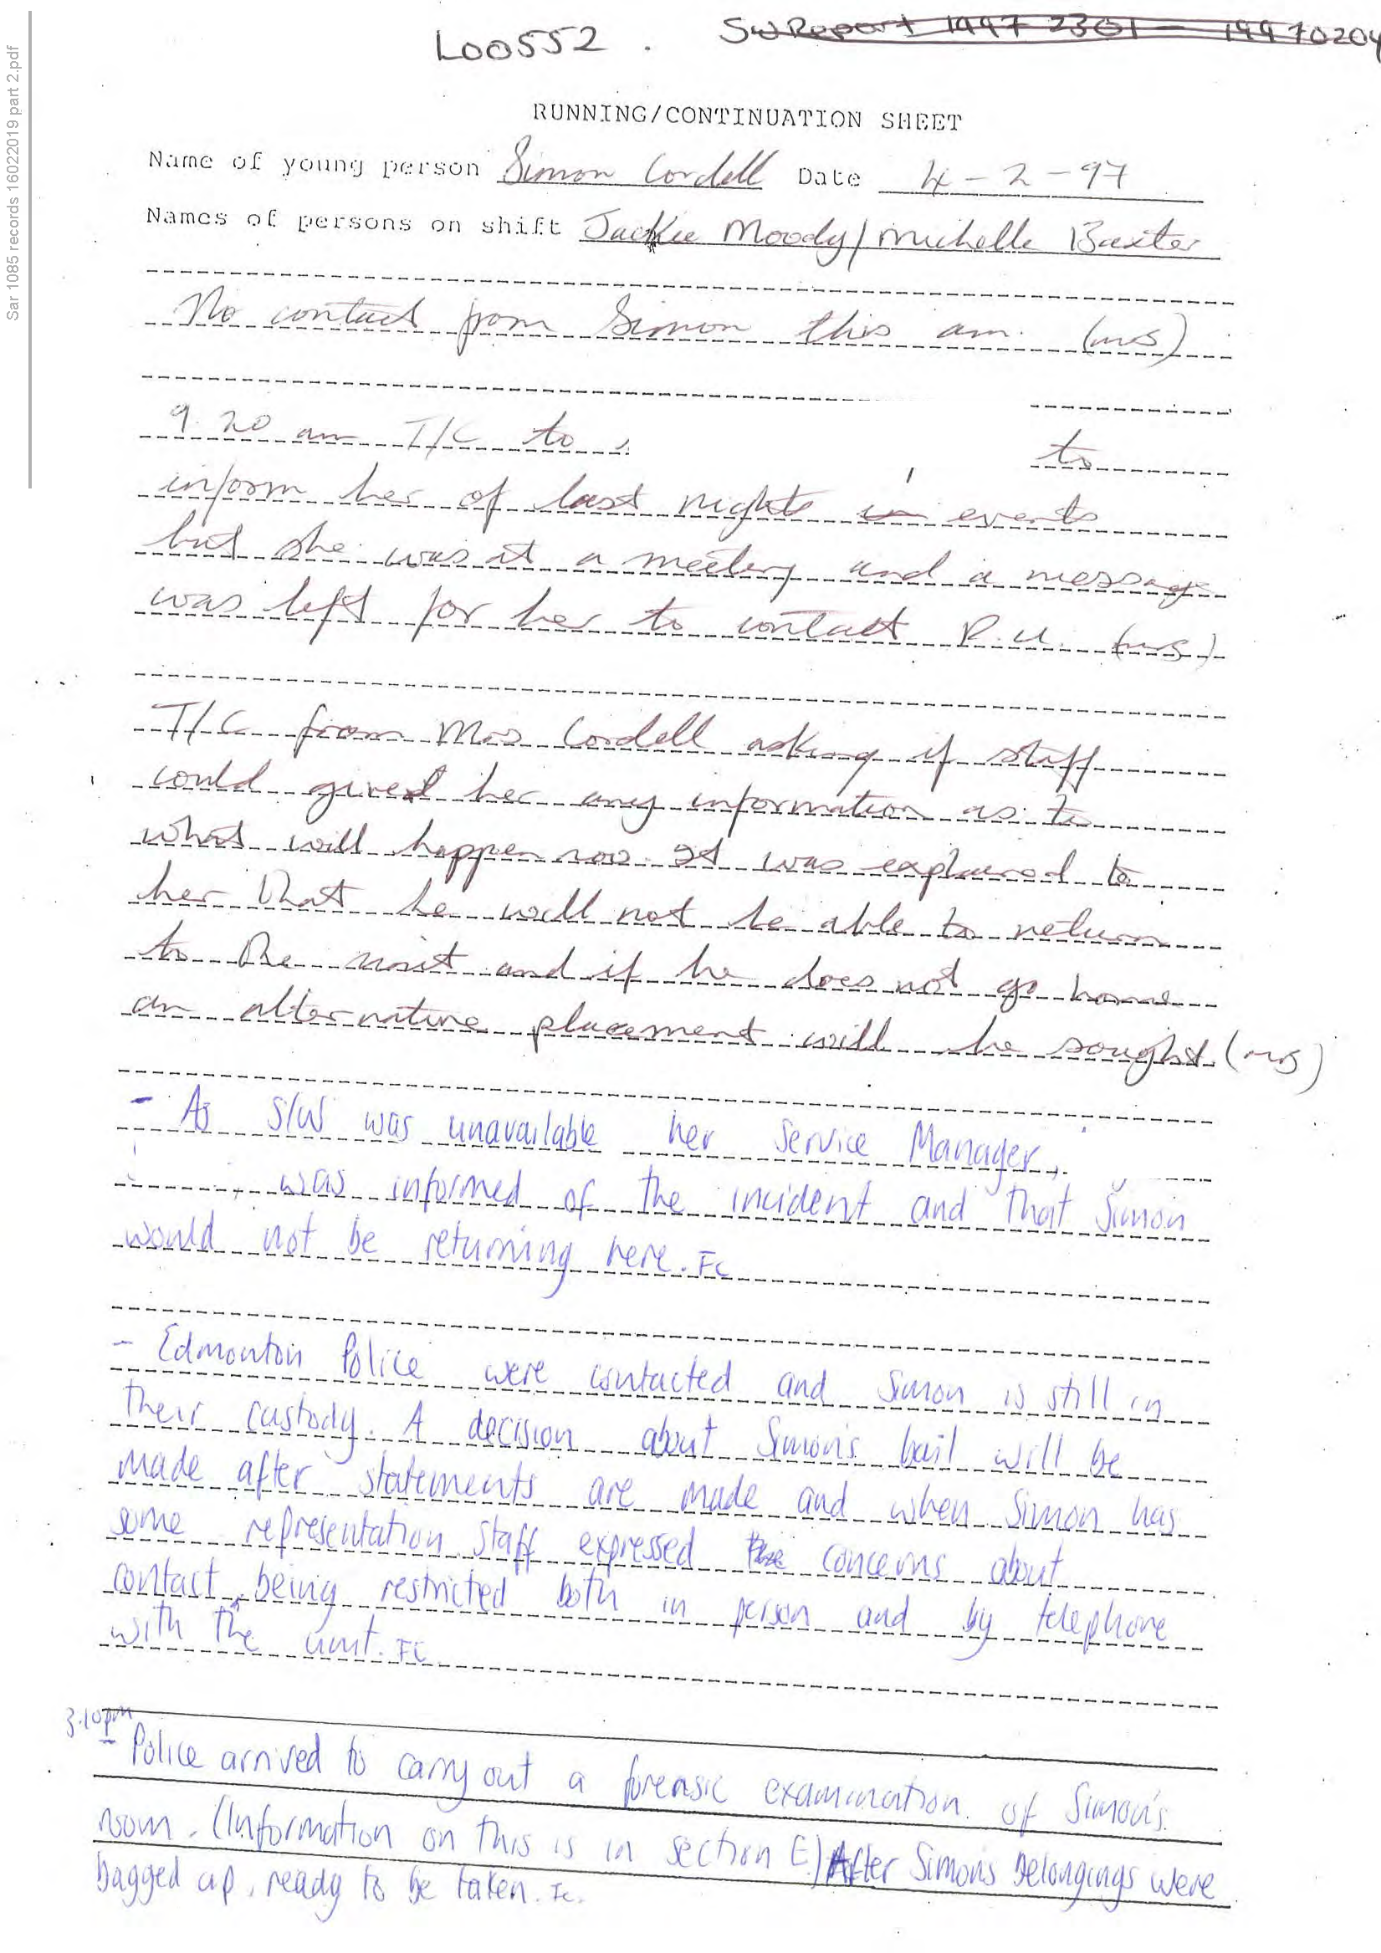 L00552 . SW Report 1997 2301 — 19970204
Sar 1085 records 16022019 part 2.pdf
RUNNING/CONTINUATION SHEET
Name of young person Simon Cordell Date 4-2-97
Names of persons on shift Jackie Moody/Michelle Baxter
No contact from Simon this am. (ms)
9.20 am T/C to to
inform her of last nights events
but she was at a meeting and a message
was left for her to contact R.U. (ms)
T/C from Mrs Cordell asking if staff
could give her any information as to
what will happen now. It was explained to
her that he will not be able to return
to the unit and if he does not go home
an alternative placement will be sought. (ms)
- As S/W was unavailable her Service Manager,
was informed of the incident and that Simon
would not be returning here. FC
- Edmonton Police were contacted and Simon is still in
their custody. A decision about Simon's bail will be
made after statements are made and when Simon has
some representation. Staff expressed concerns about
contact being restricted both in person and by telephone
with the unit. FC
3.10pm
- Police arrived to carry out a forensic examination of Simon's
room. (Information on this is in section E.) After Simon's Belongings were
bagged up, ready to be taken. Fc.